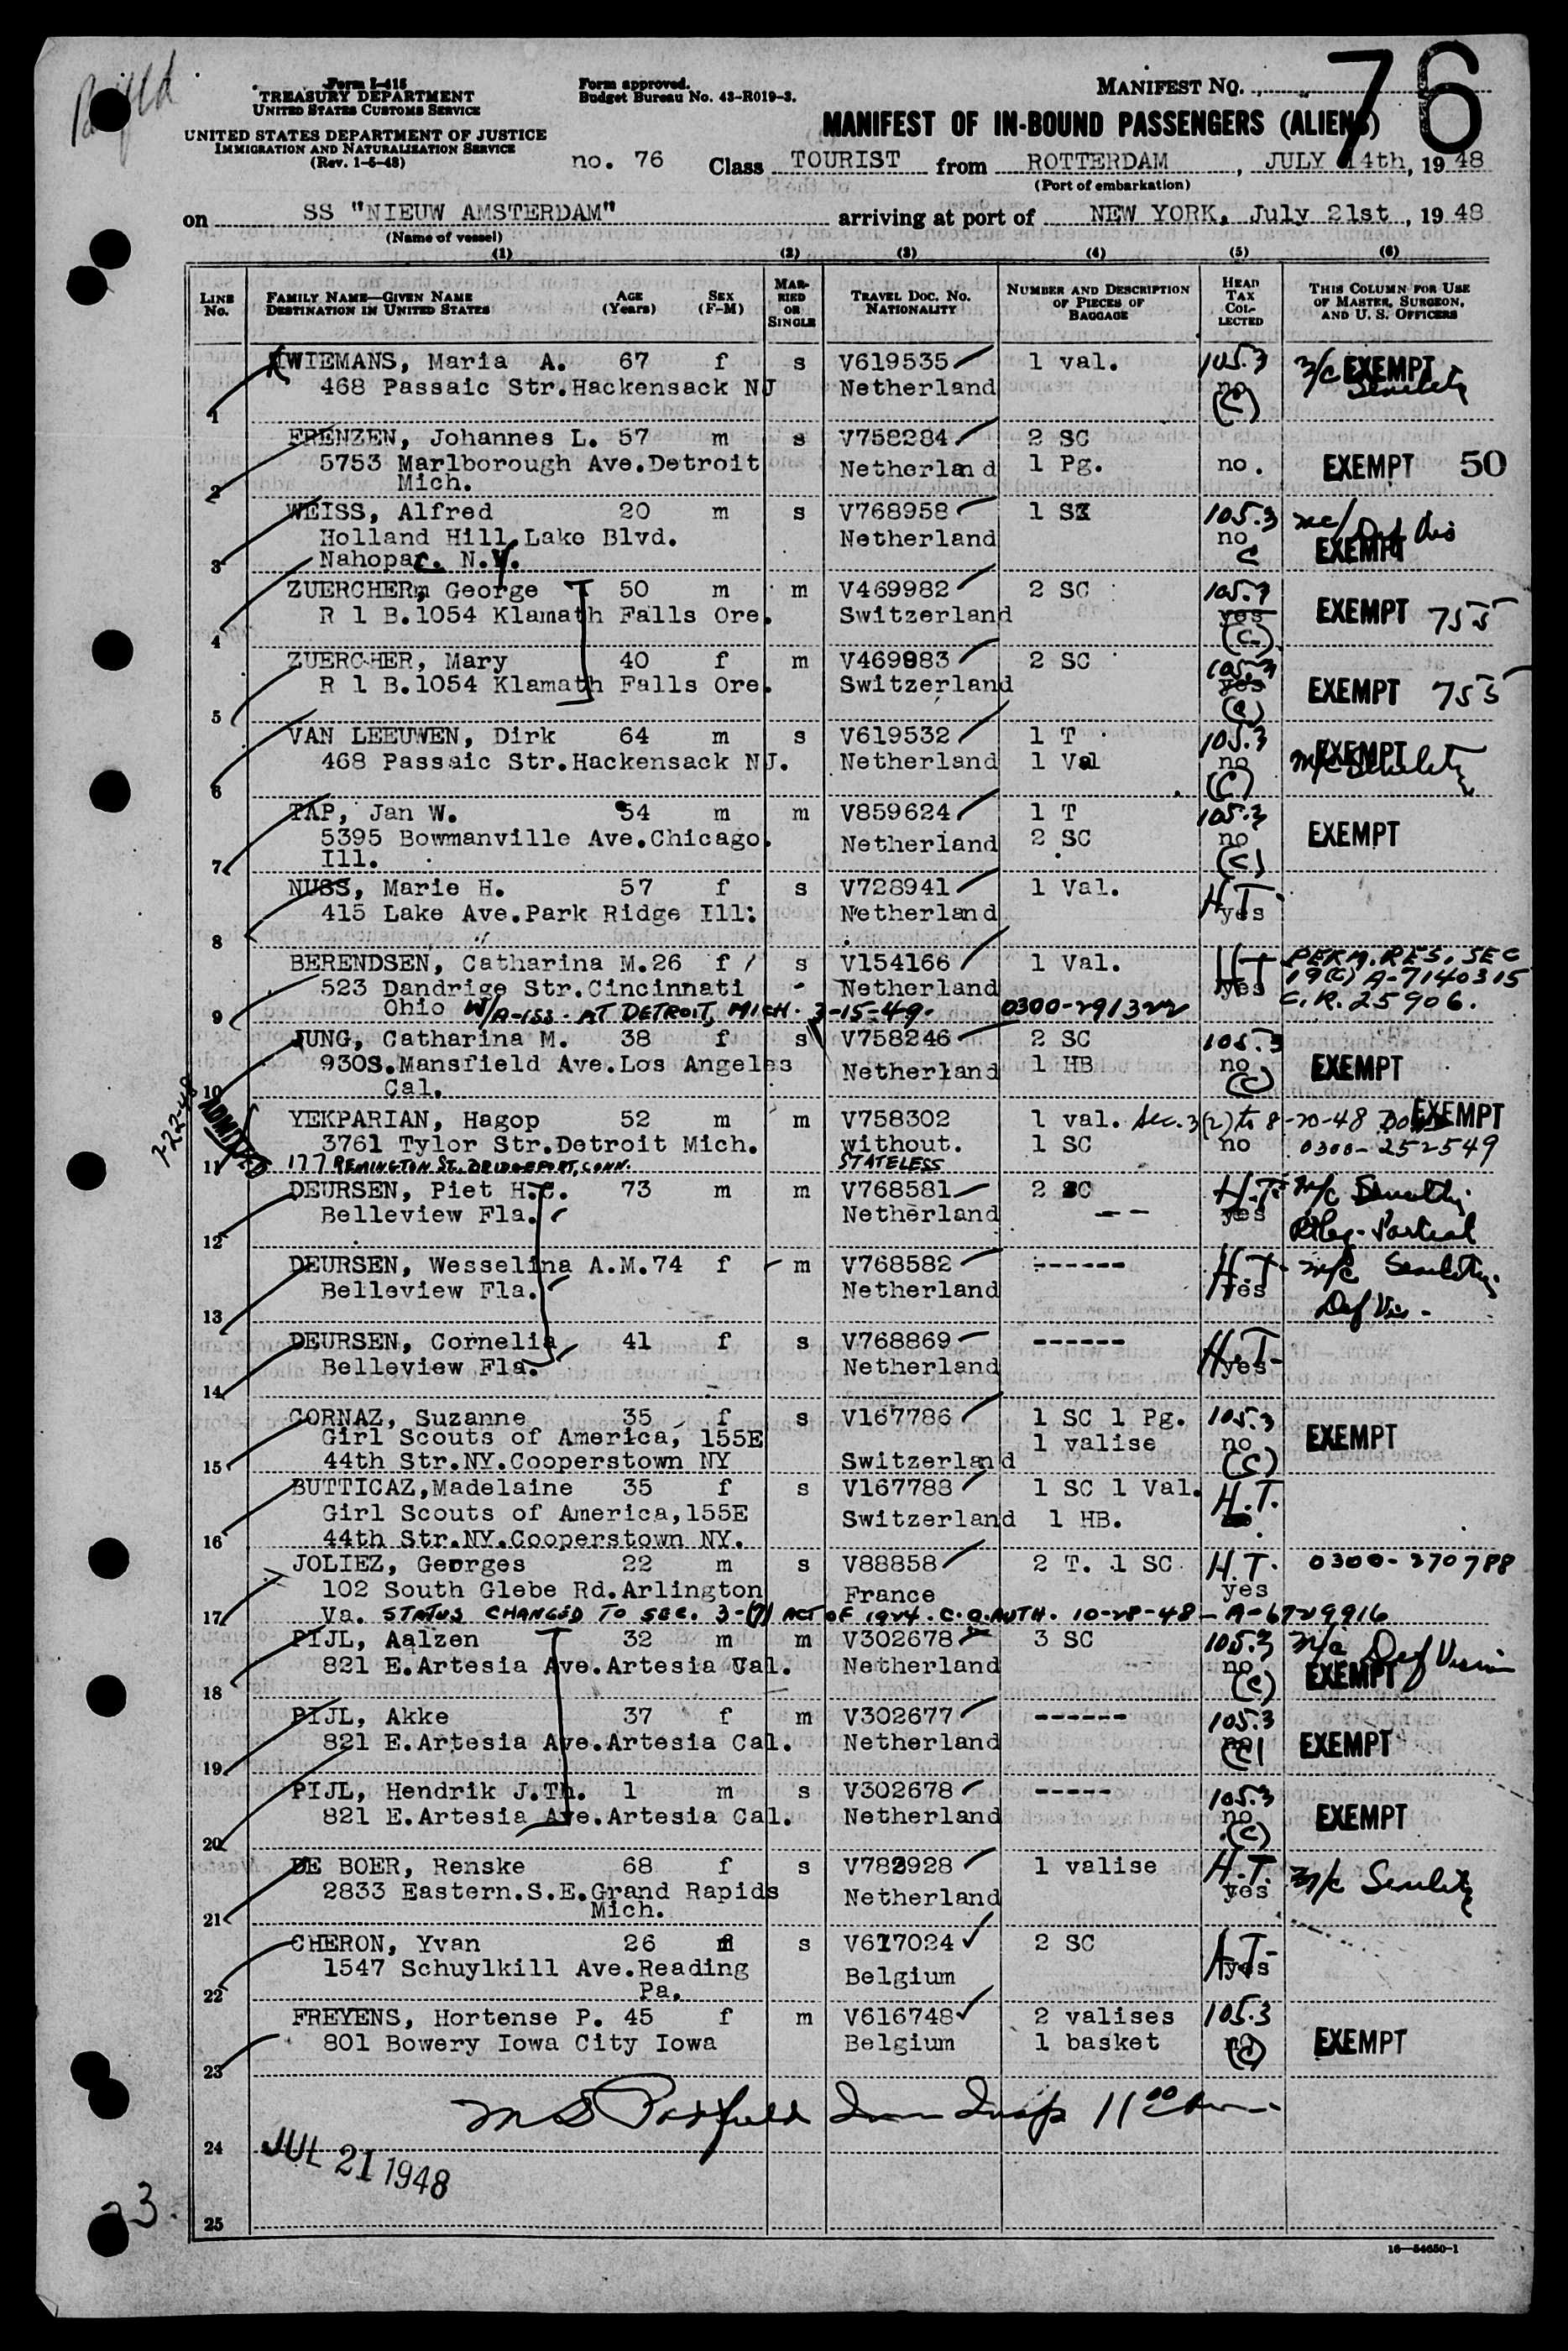 Form I-415
TREASURY DEPARTMENT
UNITED STATES CUSTOMS SERVICE
UNITED STATES DEPARTMENT OF JUSTICE
IMMIGRATION AND NATURALIZATION SERVICE
(Rev. 1-6-48)
Form approved.
Budget Bureau No. 43-R019-3.
MANIFEST NO. 76
MANIFEST OF IN-BOUND PASSENGERS (ALIENS)
no. 76 Class TOURIST from ROTTERDAM, JULY 14th, 1948
(Port of embarkation)
on SS "NIEUW AMSTERDAM" arriving at port of NEW YORK, July 21st, 1948
(Name of vessel)
(1) (2) (3) (4) (5) (6)
LINE No. FAMILY NAME—GIVEN NAME DESTINATION IN UNITED STATES AGE (Years) SEX (F-M) MARRIED OR SINGLE TRAVEL DOC. NO. NATIONALITY NUMBER AND DESCRIPTION OF PIECES OF BAGGAGE HEAD TAX COLLECTED THIS COLUMN FOR USE OF MASTER, SURGEON, AND U. S. OFFICERS
WIEMANS, Maria A. 67 f s V619535 1 val. 105.3 m/c EXEMPT
468 Passaic Str.Hackensack NJ Netherland no Senility
1 (C)
FRENZEN, Johannes L. 57 m s V758284 2 SC
5753 Marlborough Ave.Detroit Netherland 1 Pg. no. EXEMPT 50
2 Mich.
WEISS, Alfred 20 m s V768958 1 SX 105.3 m/c Def Vis
Holland Hill Lake Blvd. Netherland no EXEMPT
3 Nahopac. N.Y. C
ZUERCHER, George 50 m m V469982 2 SC 105.3
R 1 B.1054 Klamath Falls Ore. Switzerland yes EXEMPT 755
4 (C)
ZUERCHER, Mary 40 f m V469983 2 SC 105.3
R 1 B.1054 Klamath Falls Ore. Switzerland yes EXEMPT 755
5 (C)
VAN LEEUWEN, Dirk 64 m s V619532 1 T 105.3 EXEMPT
468 Passaic Str.Hackensack NJ. Netherland 1 Val no m/c Senility
6 (C)
TAP, Jan W. 54 m m V859624 1 T 105.3
5395 Bowmanville Ave.Chicago. Netherland 2 SC no EXEMPT
7 Ill. (C)
NUSS, Marie H. 57 f s V728941 1 Val. H.T.
415 Lake Ave.Park Ridge Ill. Netherland yes
8
BERENDSEN, Catharina M.26 f s V154166 1 Val. HT PERM. RES. SEC
523 Dandrige Str.Cincinnati Netherland yes 19(C) A-7140315
9 Ohio W/A-ISS. AT DETROIT, MICH. 3-15-49. 0300-291322 C.R. 25906.
JUNG, Catharina M. 38 f s V758246 2 SC 105.3
930S.Mansfield Ave.Los Angeles Netherland 1 HB no EXEMPT
10 Cal. (C)
7-22-48 ADMITTED
YEKPARIAN, Hagop 52 m m V758302 1 val. Sec. 3(2) to 8-20-48 EXEMPT
3761 Tylor Str.Detroit Mich. without. 1 SC no 0300-252549
11 177 REMINGTON ST. BRIDGEPORT, CONN. STATELESS
DEURSEN, Piet H.C. 73 m m V768581 2 SC H.T. m/c Senility
Belleview Fla. Netherland -- yes
12
DEURSEN, Wesselina A.M.74 f m V768582 ------ H.T. m/c Senility
Belleview Fla. Netherland yes Def Vis.
13
DEURSEN, Cornelia 41 f s V768869 ------ H.T.
Belleview Fla. Netherland yes
14
CORNAZ, Suzanne 35 f s V167786 1 SC 1 Pg. 105.3
Girl Scouts of America, 155E 1 valise no EXEMPT
15 44th Str.NY.Cooperstown NY Switzerland (C)
BUTTICAZ,Madelaine 35 f s V167788 1 SC 1 Val. H.T.
Girl Scouts of America,155E Switzerland 1 HB.
16 44th Str.NY.Cooperstown NY.
JOLIEZ, Georges 22 m s V88858 2 T. 1 SC H.T. 0300-270788
102 South Glebe Rd.Arlington France yes
17 Va. STATUS CHANGED TO SEC. 3-(7) ACT OF 1924. C.O. AUTH. 10-28-48 - A-6729916
PIJL, Aalzen 32 m m V302678 3 SC 105.3 m/c Def Vision
821 E.Artesia Ave.Artesia Cal. Netherland no EXEMPT
18 (C)
PIJL, Akke 37 f m V302677 ------ 105.3
821 E.Artesia Ave.Artesia Cal. Netherland no EXEMPT
19 (C)
PIJL, Hendrik J.Th. 1 m s V302678 ----- 105.3
821 E.Artesia Ave.Artesia Cal. Netherland no EXEMPT
20 (C)
DE BOER, Renske 68 f s V782928 1 valise H.T. m/c Senility
2833 Eastern.S.E.Grand Rapids Netherland yes
21 Mich.
CHERON, Yvan 26 m s V617024 2 SC H.T.
1547 Schuylkill Ave.Reading Belgium yes
22 Pa.
FREYENS, Hortense P. 45 f m V616748 2 valises 105.3
801 Bowery Iowa City Iowa Belgium 1 basket no EXEMPT
23 (C)
Imm Insp 11 00 am
24
JUL 21 1948
25
16—54650-1